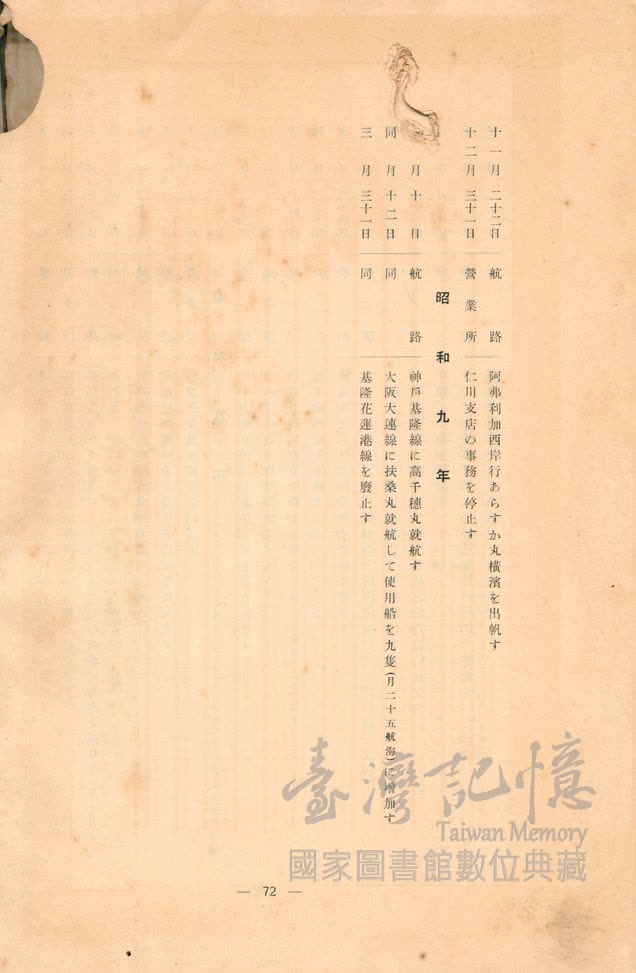 十一月二十二日 航路 阿弗利加西岸行あらすか丸橫濱を出帆す
十二月三十一日 營業所 仁川支店の事務を停止す
昭和九年
月十日 航路 神戶基隆線に高千穗丸就航す
同月十二日 同 大阪大連線に扶桑丸就航して使用船を九隻(月二十五航海)に增加す
三月三十一日 同 基隆花蓮港線を廢止す
臺灣記憶
Taiwan Memory
國家圖書館數位典藏
— 72 —